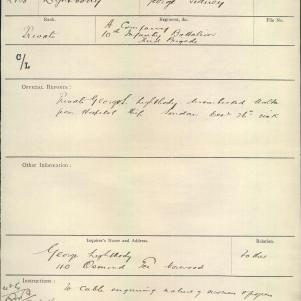 Lightbody George Sidney
Rank. Regiment, &c. File No.
Private A Company
10th Infantry Battalion
Third Brigade
C/L
OFFICIAL REPORTS:
Private George S. Lightbody disembarked Malta
from Hospital Ship Decr 26th
OTHER INFORMATION:
Inquirer's Name and Address. Relation.
George Lightbody Father
110 Osmond Tce Norwood
Instructions:
To cable enquiring nature of wounds &